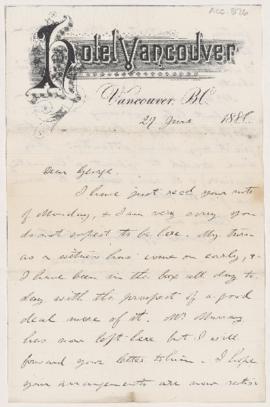 Acc. 526
Hotel Vancouver
Vancouver, B.C.
27 June 188
Dear George.
I have just recd your note
of Monday, & I am very sorry you
do not expect to be here. My turn
as a witness has come on early, &
I have been in the box all day to
day with the prospect of a good
deal more of it. Mr Murray
has now left here but I will
forward your letter to him. I hope
your arrangements are now